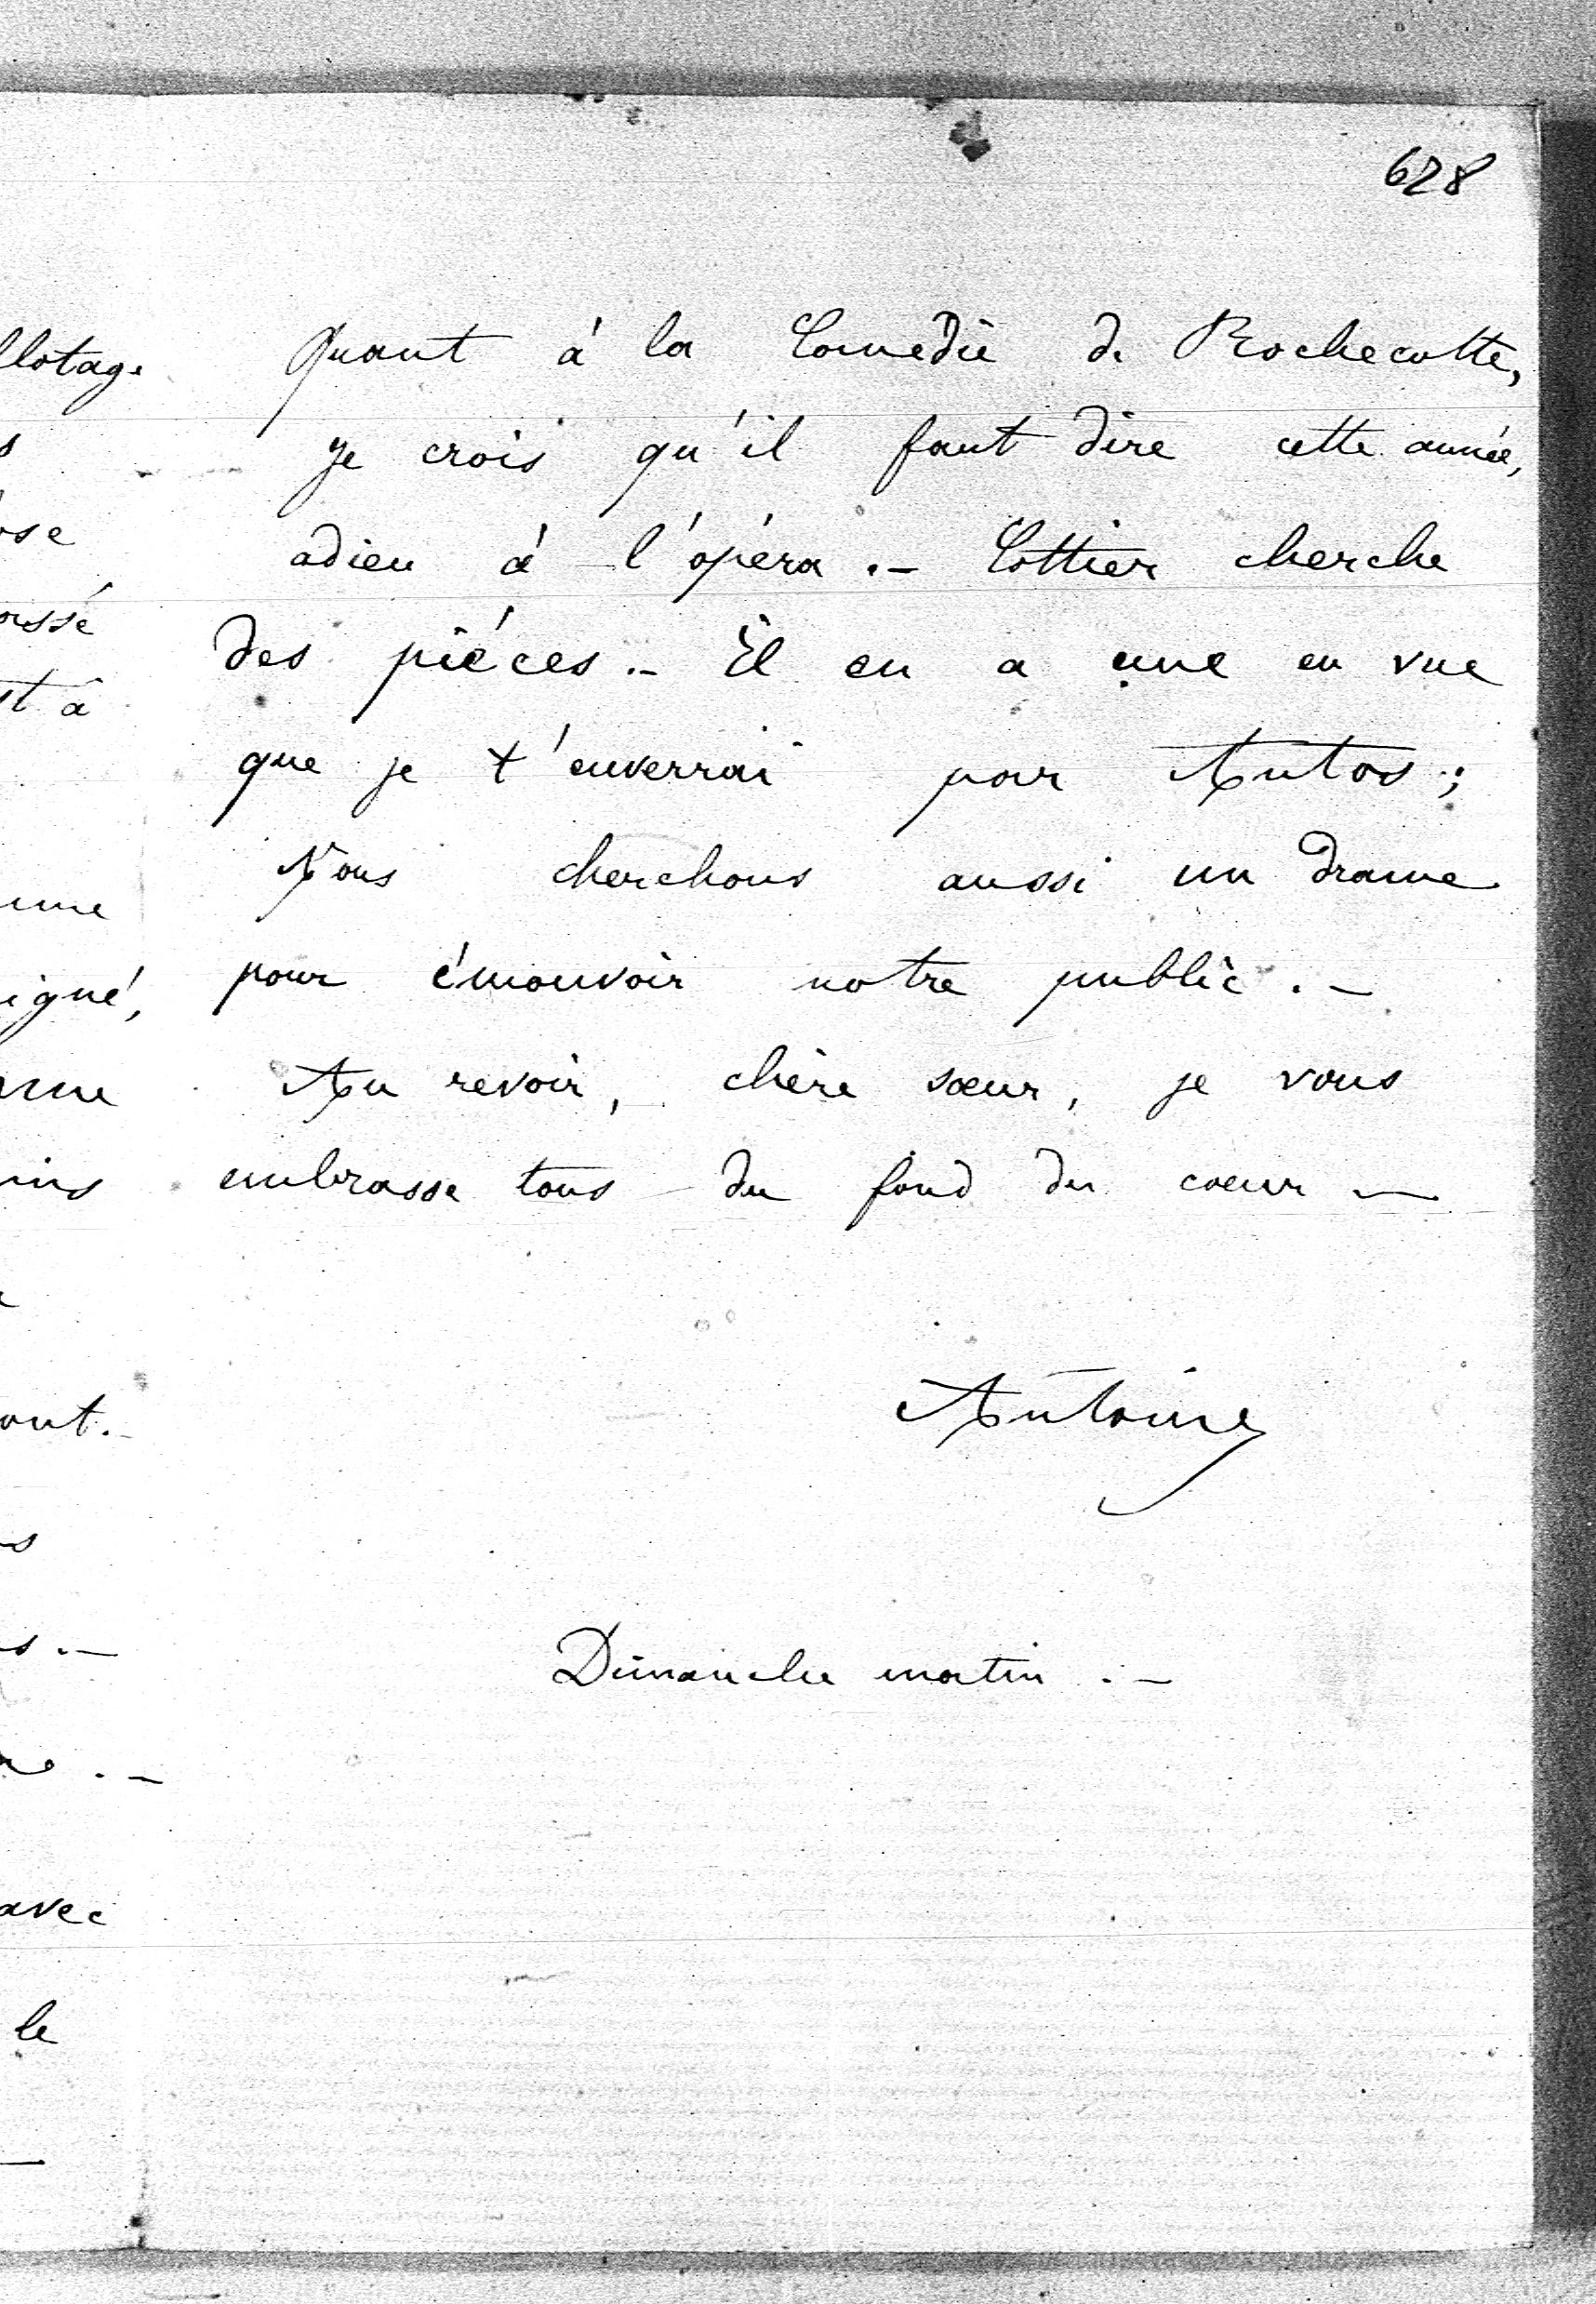 628
Quant à la Comédie de Rochecotte,
je crois qu'il faut dire cette année,
adieu à l'opéra .- Cottier cherche
des pièces .- Il en a une en vue
que je t'enverrai pour Antos ;
Nous cherchons aussi un drame
pour émouvoir notre public .-
Au revoir, chère sœur, je vous
embrasse tous du fond du cœur -
Antoine
Dimanche matin .-
llotage
s
ose
oussé
st à
une
igné,
ins
ont.
s
s .-
avec
le